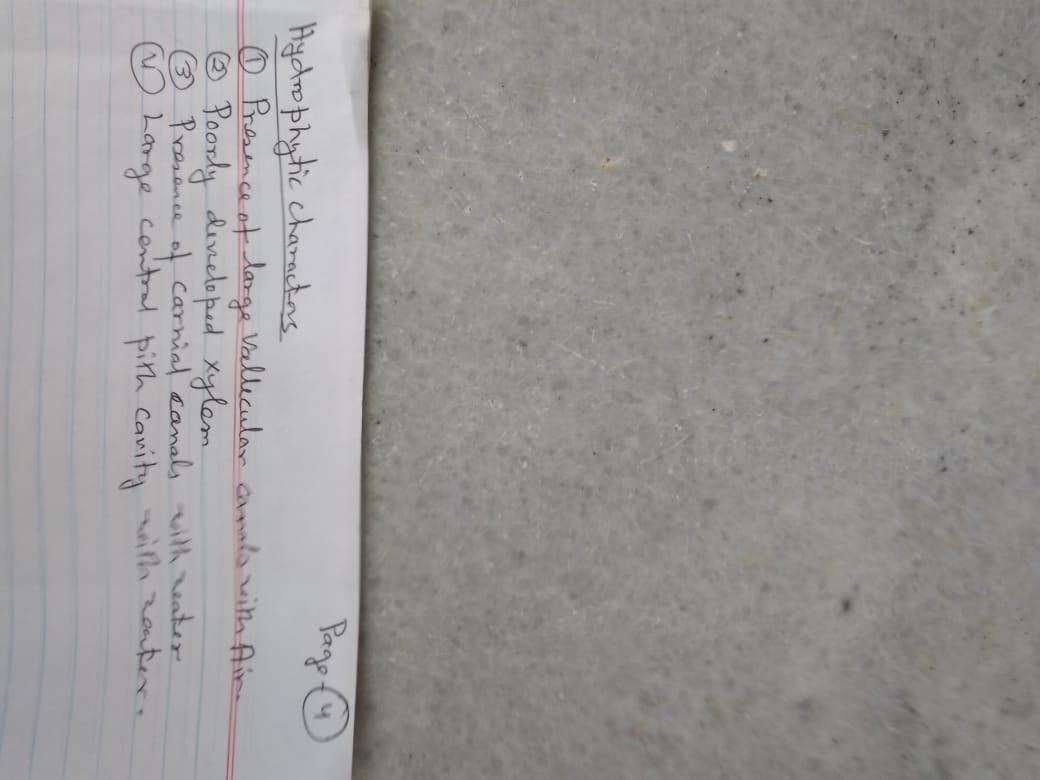 Page-4
Hydrophytic characters
① Presence of large vallecular canals with Air.
② Poorly developed xylem
③ Presence of carnial canals with water
④ Large central pith cavity with water.